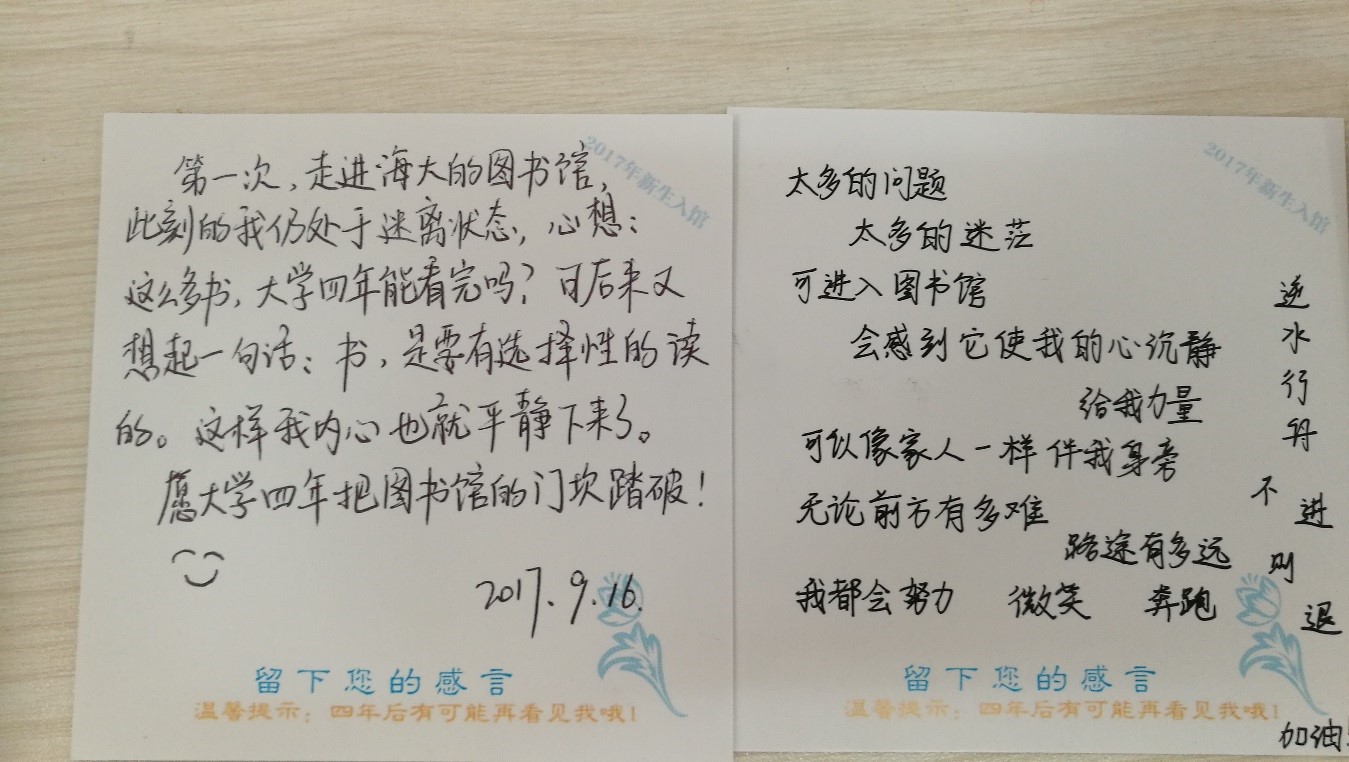 2017年新生入馆
第一次,走进海大的图书馆,
此刻的我仍处于迷离状态,心想:
这么多书,大学四年能看完吗?可后来又
想起一句话:书,是要有选择性的读
的。这样我内心也就平静下来了。
愿大学四年把图书馆的门坎踏破!
2017.9.16.
留下您的感言
温馨提示:四年后有可能再看见我哦!
2017年新生入馆
太多的问题
太多的迷茫
可进入图书馆
会感到它使我的心沉静
给我力量
可以像家人一样伴我身旁
无论前方有多难
路途有多远
我都会努力 微笑 奔跑
逆水行舟不进则退
留下您的感言
温馨提示:四年后有可能再看见我哦!
加油!